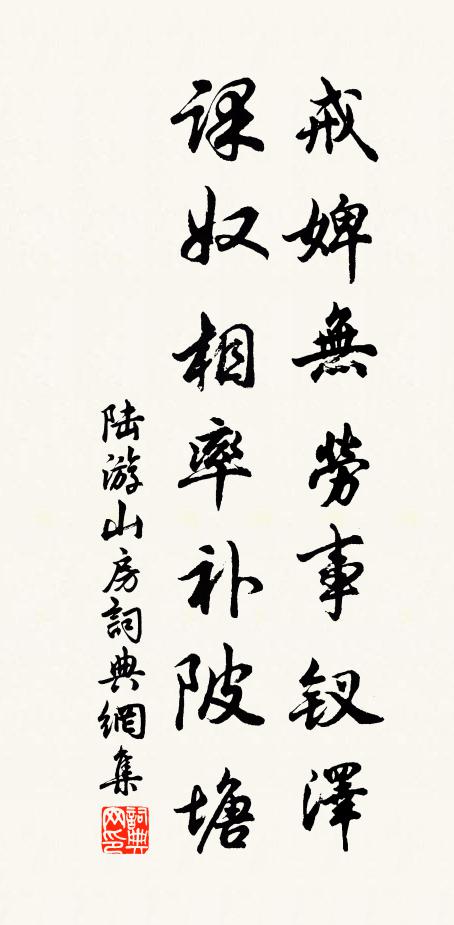 戒婢無勞事钗澤
課奴相率补陂塘
陆游山房詞典網集
詞典网印